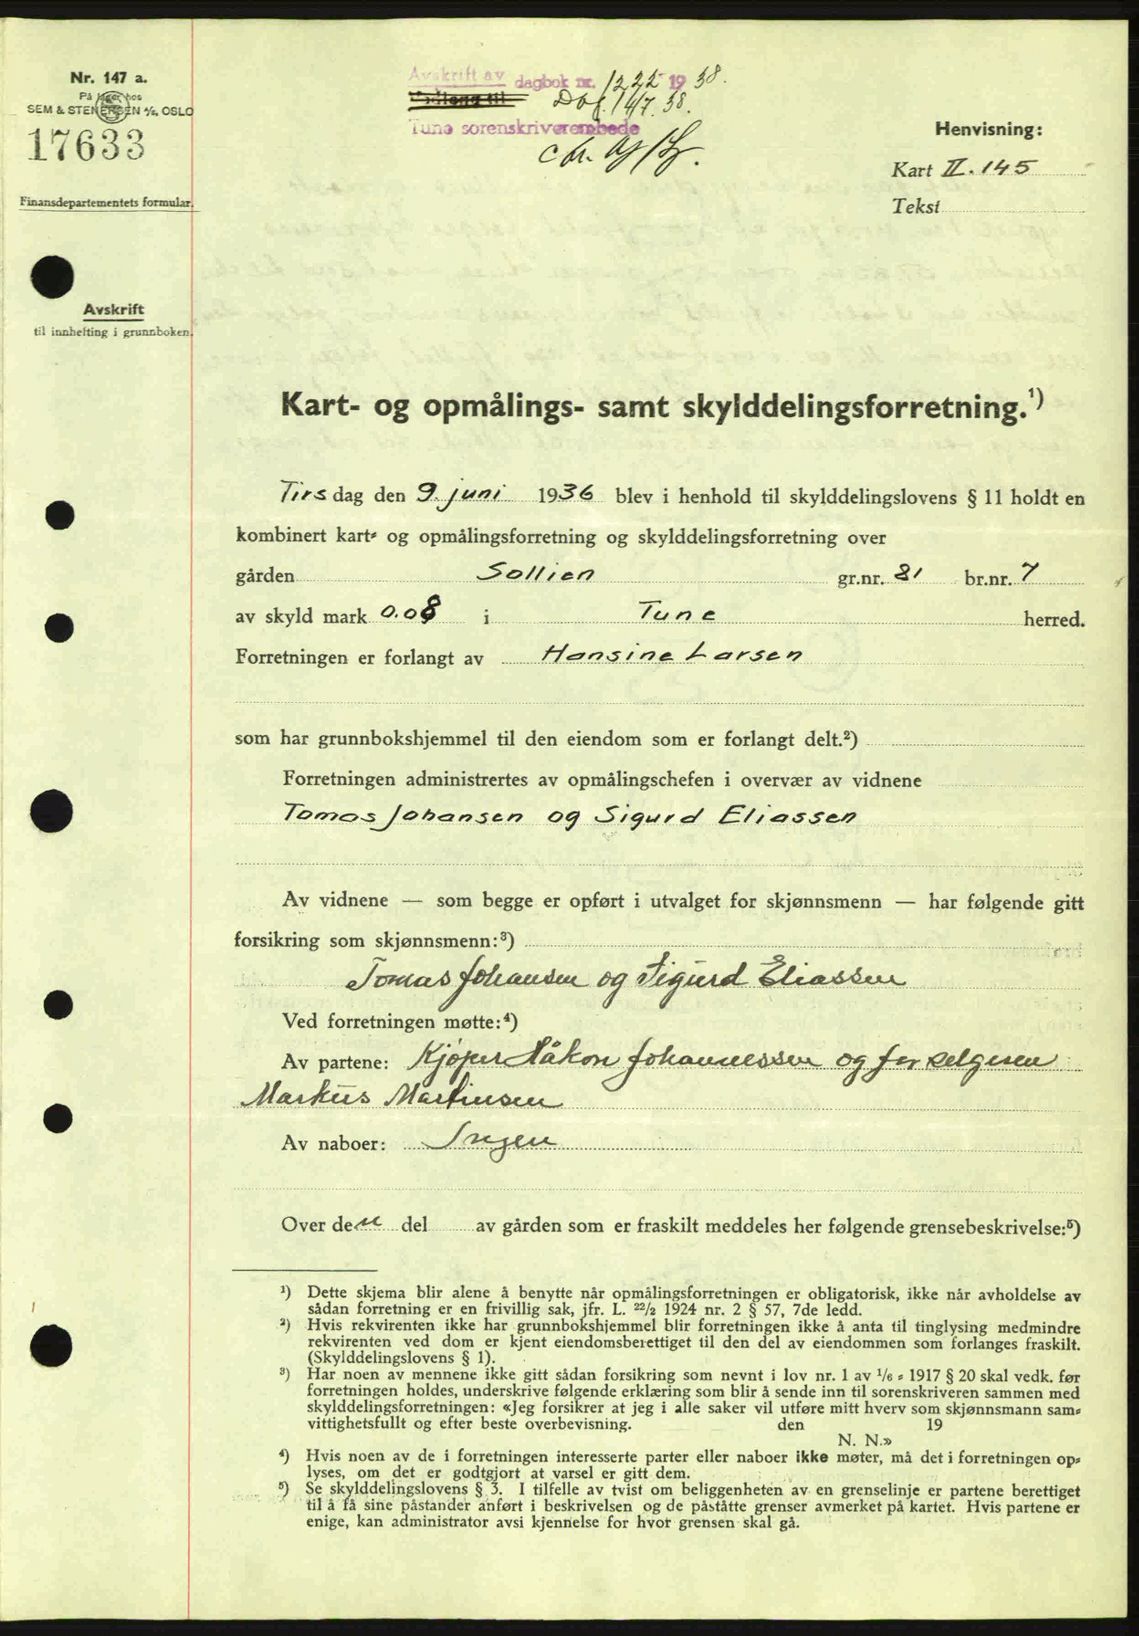 Nr. 147 a.
På lager hos
SEM & STENERSEN A/S, OSLO
17633
Finansdepartementets formular.
Avskrift
til innhefting i grunnboken.
Avskrift av dagbok nr. 1222 1938.
Vedlegg til Dbf. 14/7.38.
Tune sorenskriverembede
Henvisning:
Kart II. 145
Tekst
Kart- og opmålings- samt skylddelingsforretning.¹)
Tirsdag den 9. juni 1936 blev i henhold til skylddelingslovens § 11 holdt en
kombinert kart- og opmålingsforretning og skylddelingsforretning over
gården Sollien gr.nr. 81 br.nr. 7
av skyld mark 0.08 i Tune herred.
Forretningen er forlangt av Hansine Larsen
som har grunnbokshjemmel til den eiendom som er forlangt delt.²)
Forretningen administrertes av opmålingschefen i overvær av vidnene
Tomas Johansen og Sigurd Eliassen
Av vidnene — som begge er opført i utvalget for skjønnsmenn — har følgende gitt
forsikring som skjønnsmenn:³)
Tomas Johansen og Sigurd Eliassen
Ved forretningen møtte:⁴)
Av partene: Kjøper Håkon Johannessen og for selgeren
Markus Martinsen
Av naboer: Ingen
Over den del av gården som er fraskilt meddeles her følgende grensebeskrivelse:⁵)
¹) Dette skjema blir alene å benytte når opmålingsforretningen er obligatorisk, ikke når avholdelse av
sådan forretning er en frivillig sak, jfr. L. 22/2 1924 nr. 2 § 57, 7de ledd.
²) Hvis rekvirenten ikke har grunnbokshjemmel blir forretningen ikke å anta til tinglysing medmindre
rekvirenten ved dom er kjent eiendomsberettiget til den del av eiendommen som forlanges fraskilt.
(Skylddelingslovens § 1).
³) Har noen av mennene ikke gitt sådan forsikring som nevnt i lov nr. 1 av 1/6 - 1917 § 20 skal vedk. før
forretningen holdes, underskrive følgende erklæring som blir å sende inn til sorenskriveren sammen med
skylddelingsforretningen: «Jeg forsikrer at jeg i alle saker vil utføre mitt hverv som skjønnsmann sam-
vittighetsfullt og efter beste overbevisning. den 19
N. N.»
⁴) Hvis noen av de i forretningen interesserte parter eller naboer ikke møter, må det i forretningen op-
lyses, om det er godtgjort at varsel er gitt dem.
⁵) Se skylddelingslovens § 3. I tilfelle av tvist om beliggenheten av en grenselinje er partene berettiget
til å få sine påstander anført i beskrivelsen og de påståtte grenser avmerket på kartet. Hvis partene er
enige, kan administrator avsi kjennelse for hvor grensen skal gå.